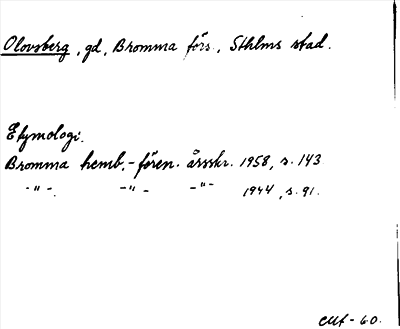 Olovsberg, gd, Bromma förs., Sthlms stad.
Etymologi.
Bromma hemb.-fören. årsskr. 1958, s. 143.
-"-. -"- -"- 1944, s. 91.
-60.